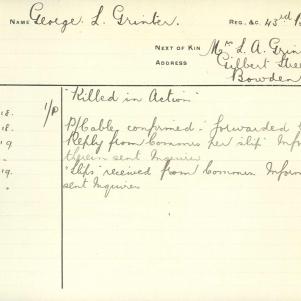 NAME George L. Grinter. REG. &C. 43rd
NEXT OF KIN Mrs L. A. Grin
ADDRESS Gilbert Stree
Bowden
1/P "Killed in Action"
18.
18. P/Cable confirmed - forwarded t
19 Reply from Commrs her slip" Infor
therein sent Inquirer
19. "Slip" received from Common Inform
sent Inquirer